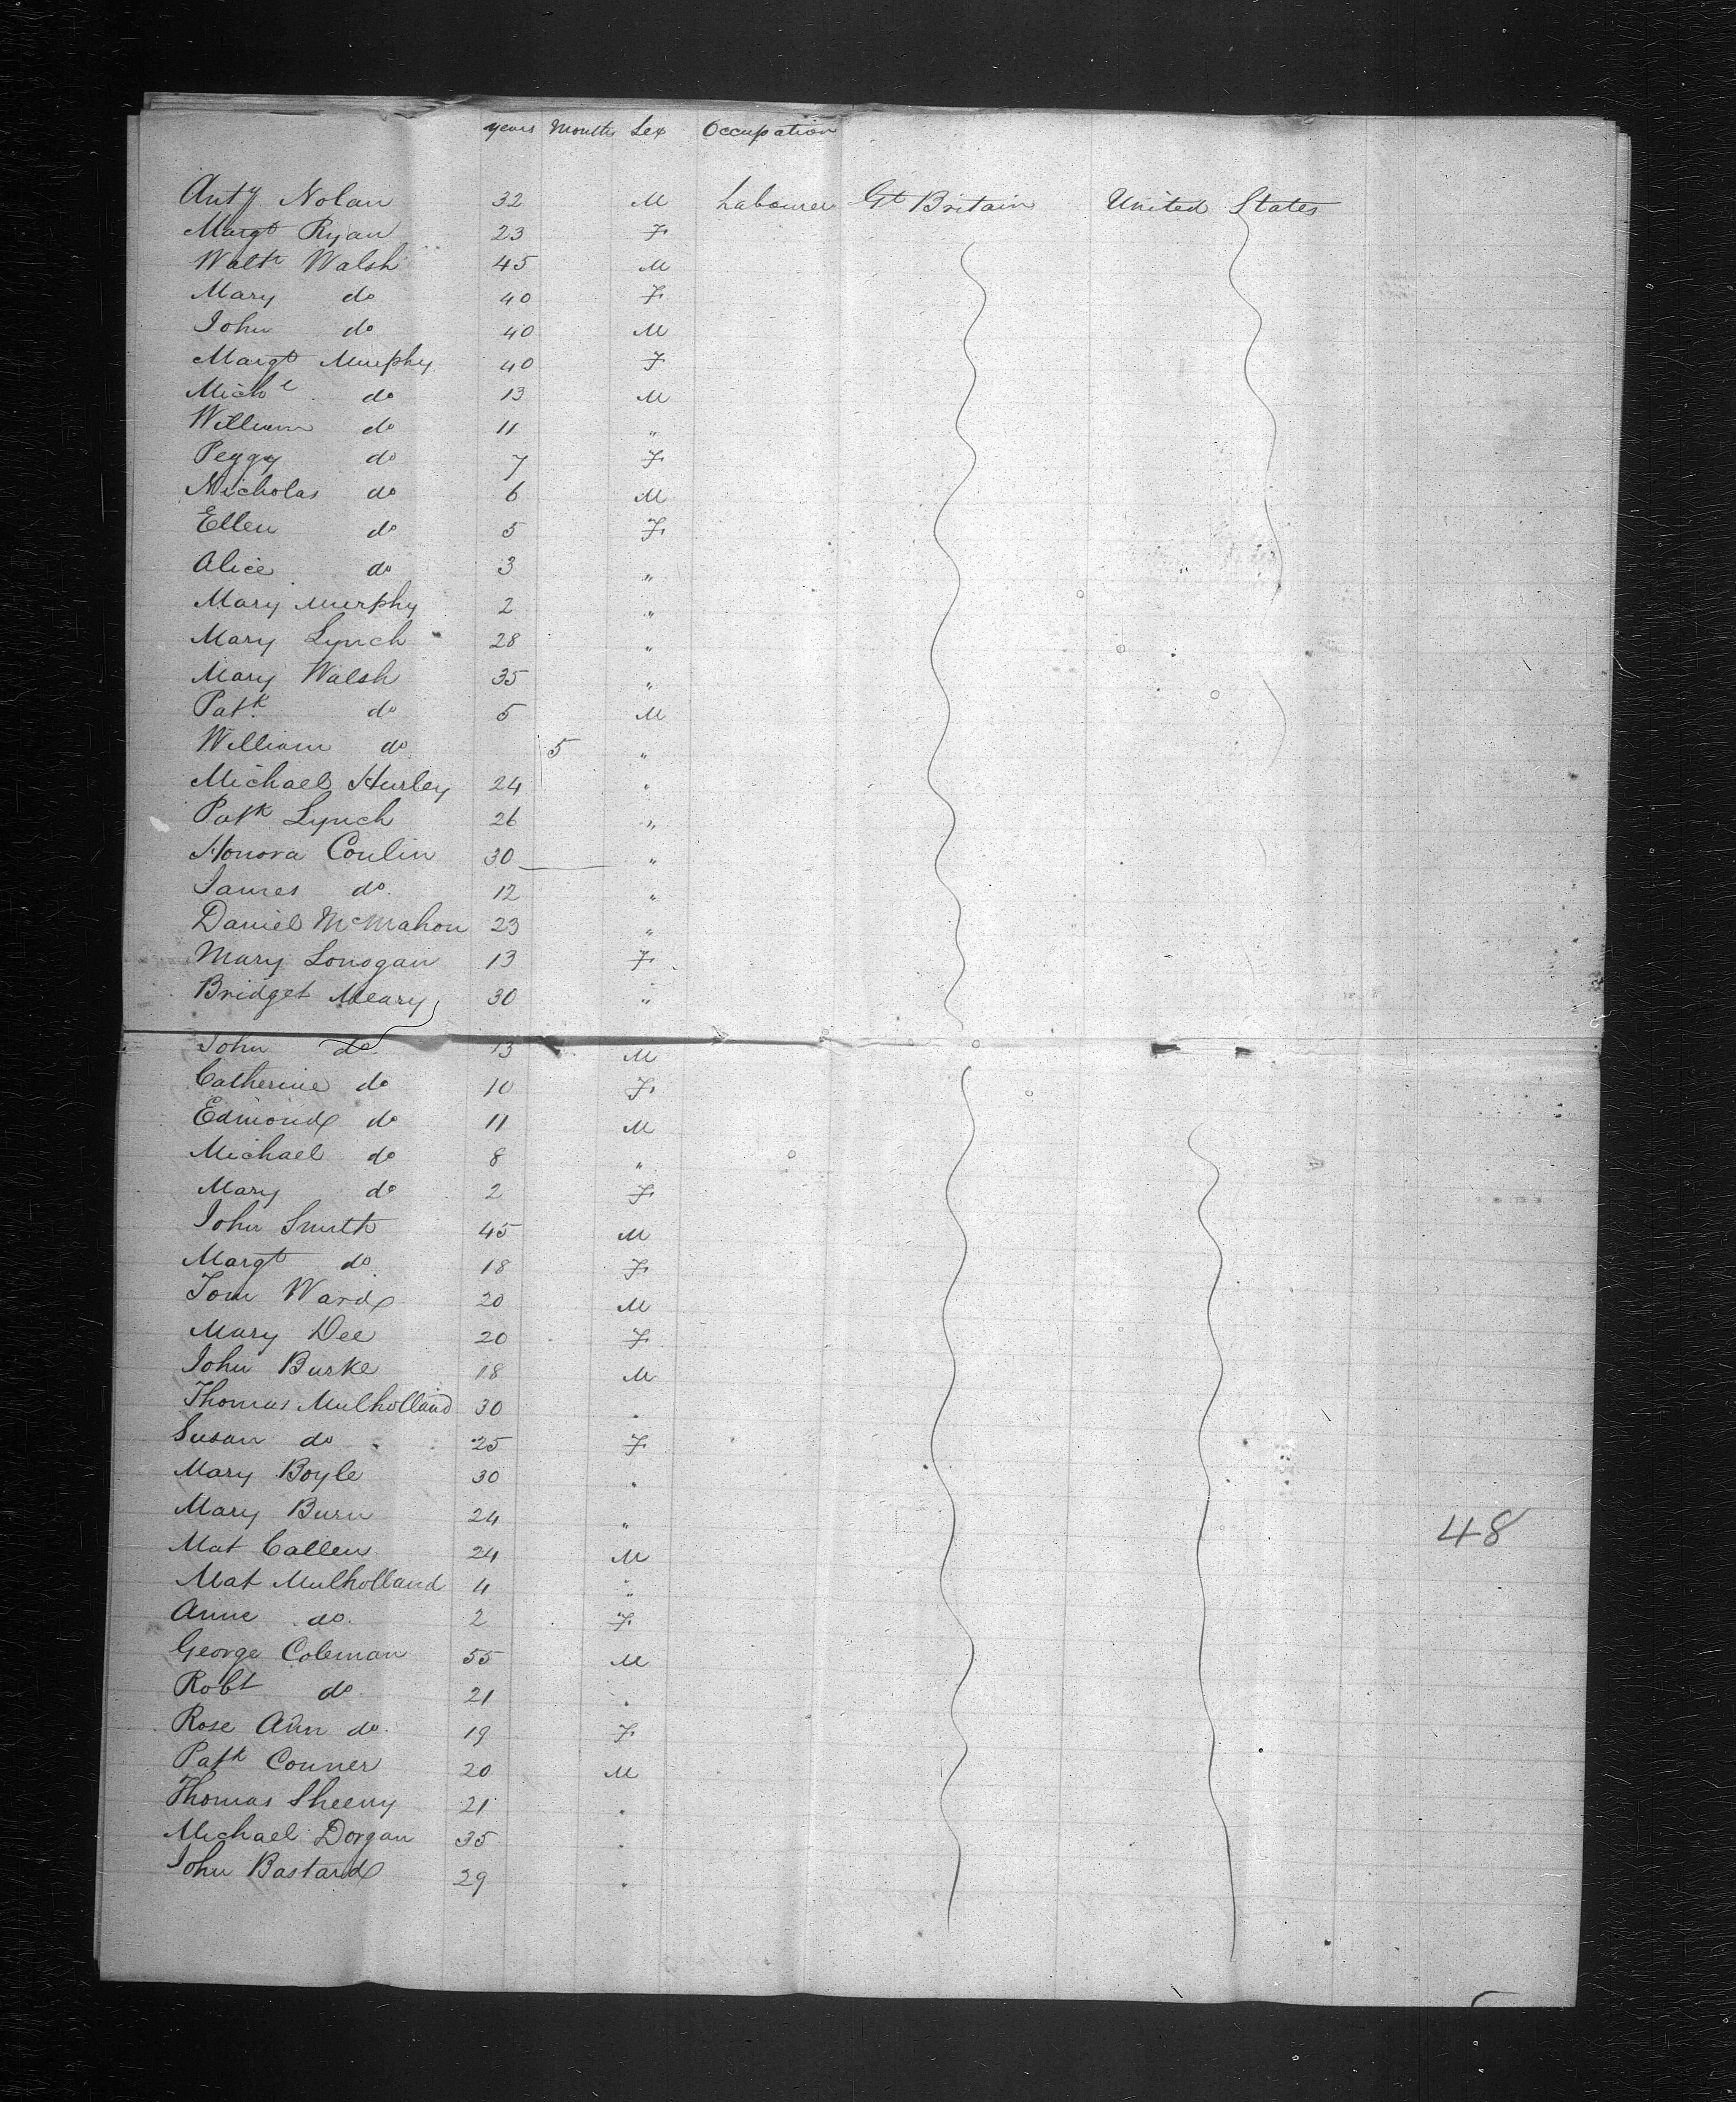 years Months Sex Occupation
Anty Nolan 32 M Labourer Gt Britain United States
Margt Ryan 23 F
Waltr Walsh 45 M
Mary do 40 F
John do 40 M
Margt Murphy 40 F
Michl do 13 M
William do 11 "
Peggy do 7 F
Nicholas do 6 M
Ellen do 5 F
Alice do 3 "
Mary Murphy 2 "
Mary Lynch 28 "
Mary Walsh 35 "
Patk do 5 M
William do 5 "
Michael Hurley 24 "
Patk Lynch 26 "
Honora Conlin 30 "
James do. 12 "
Daniel McMahon 23 "
Mary Lonogan 13 F
Bridget Meary 30 "
John do 13 M
Catherine do 10 F
Edmond do 11 M
Michael do 8 "
Mary do 2 F
John Smith 45 M
Margt do 18 F
Tom Ward 20 M
Mary Dee 20 F
John Burke 18 M
Thomas Mulholland 30 "
Susan do 25 F
Mary Boyle 30 "
Mary Burn 24 "
Mat Callens 24 M
48
Mat Mulholland 4 "
Anne do. 2 F
George Coleman 55 M
Robt do 21 "
Rose Ann do. 19 F
Patk Conner 20 M
Thomas Sheeny 21 "
Michael Dorgan 35 "
John Bastard 29 "